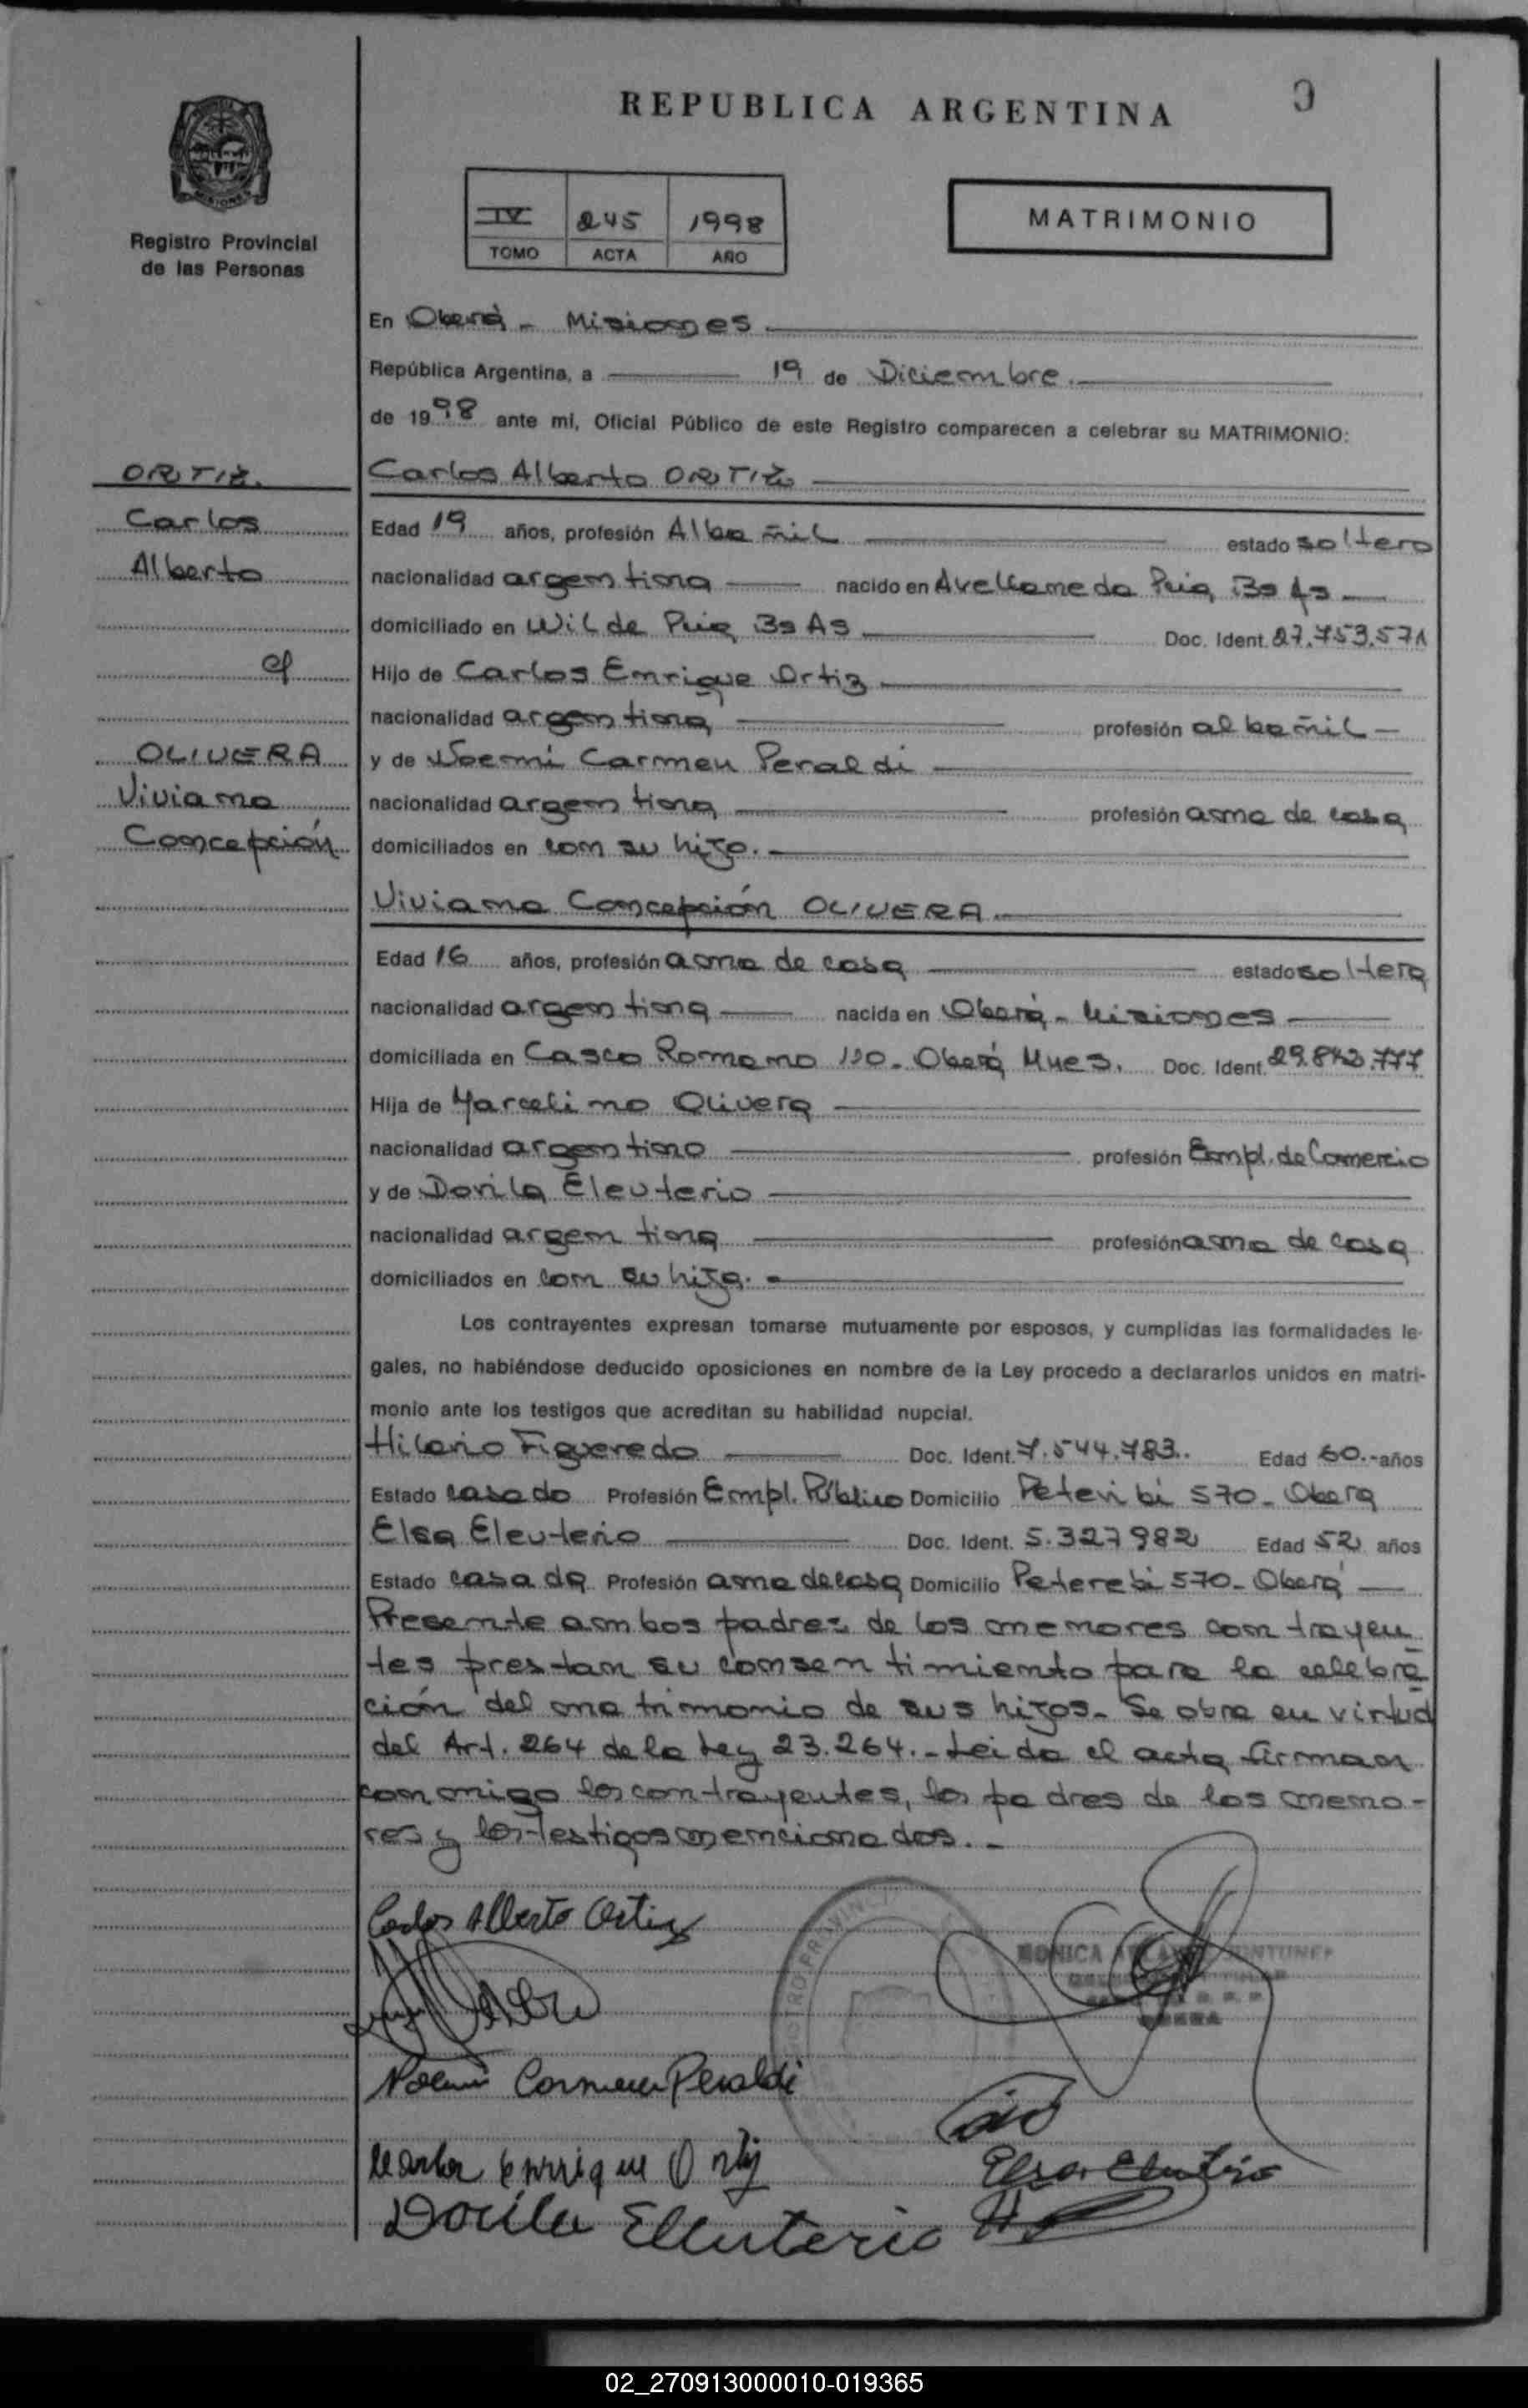 REPUBLICA ARGENTINA
MISIONES
Registro Provincial
de las Personas
IV 245 1998
TOMO ACTA AÑO
MATRIMONIO
En Oberá - Misiones
República Argentina, a 19 de Diciembre
de 1998 ante mí, Oficial Público de este Registro comparecen a celebrar su MATRIMONIO:
ORTIZ.
Carlos
Alberto
c/
OLIVERA
Viviana
Concepción
Carlos Alberto ORTIZ
Edad 19 años, profesión Albañil estado soltero
nacionalidad argentina nacido en Avellaneda Pcia, Bs As
domiciliado en Wilde Pcia Bs As Doc. Ident. 27.753.571
Hijo de Carlos Enrique Ortiz
nacionalidad argentina profesión albañil -
y de Noemí Carmen Peraldi
nacionalidad argentina profesión ama de casa
domiciliados en con su hijo.
Viviana Concepción OLIVERA
Edad 16 años, profesión ama de casa estado soltera
nacionalidad argentina nacida en Oberá - Misiones
domiciliada en Casco Romano 120 - Oberá Mnes. Doc. Ident.
Hija de Marcelino Olivera
nacionalidad argentino profesión Empl. de Comercio
y de Dorila Eleuterio
nacionalidad argentina profesión ama de casa
domiciliados en con su hija.
Los contrayentes expresan tomarse mutuamente por esposos, y cumplidas las formalidades le-
gales, no habiéndose deducido oposiciones en nombre de la Ley procedo a declararlos unidos en matri-
monio ante los testigos que acreditan su habilidad nupcial.
Hilario Figueredo Doc. Ident. 7.544.783. Edad 60.- años
Estado casado Profesión Empl. Público Domicilio Peteribi 570 - Oberá
Elsa Eleuterio Doc. Ident. 5.327982 Edad 52 años
Estado casada Profesión ama de casa Domicilio Peterebi 570 - Oberá
Presente ambos padres de los menores contrayen_
tes prestan su consentimiento para la celebra_
ción del matrimonio de sus hijos - Se obra en virtud
del Art. 264 de la Ley 23.264. - Leída el acta firman
conmigo los contrayentes, los padres de los meno-
res y los testigos mencionados. -
Carlos Alberto Ortiz
MONICA
Noemi Carmen Peraldi
Carlos Enrrique Ortiz
Elsa Eleuterio
Dorila Elleuterio
02_270913000010-019365